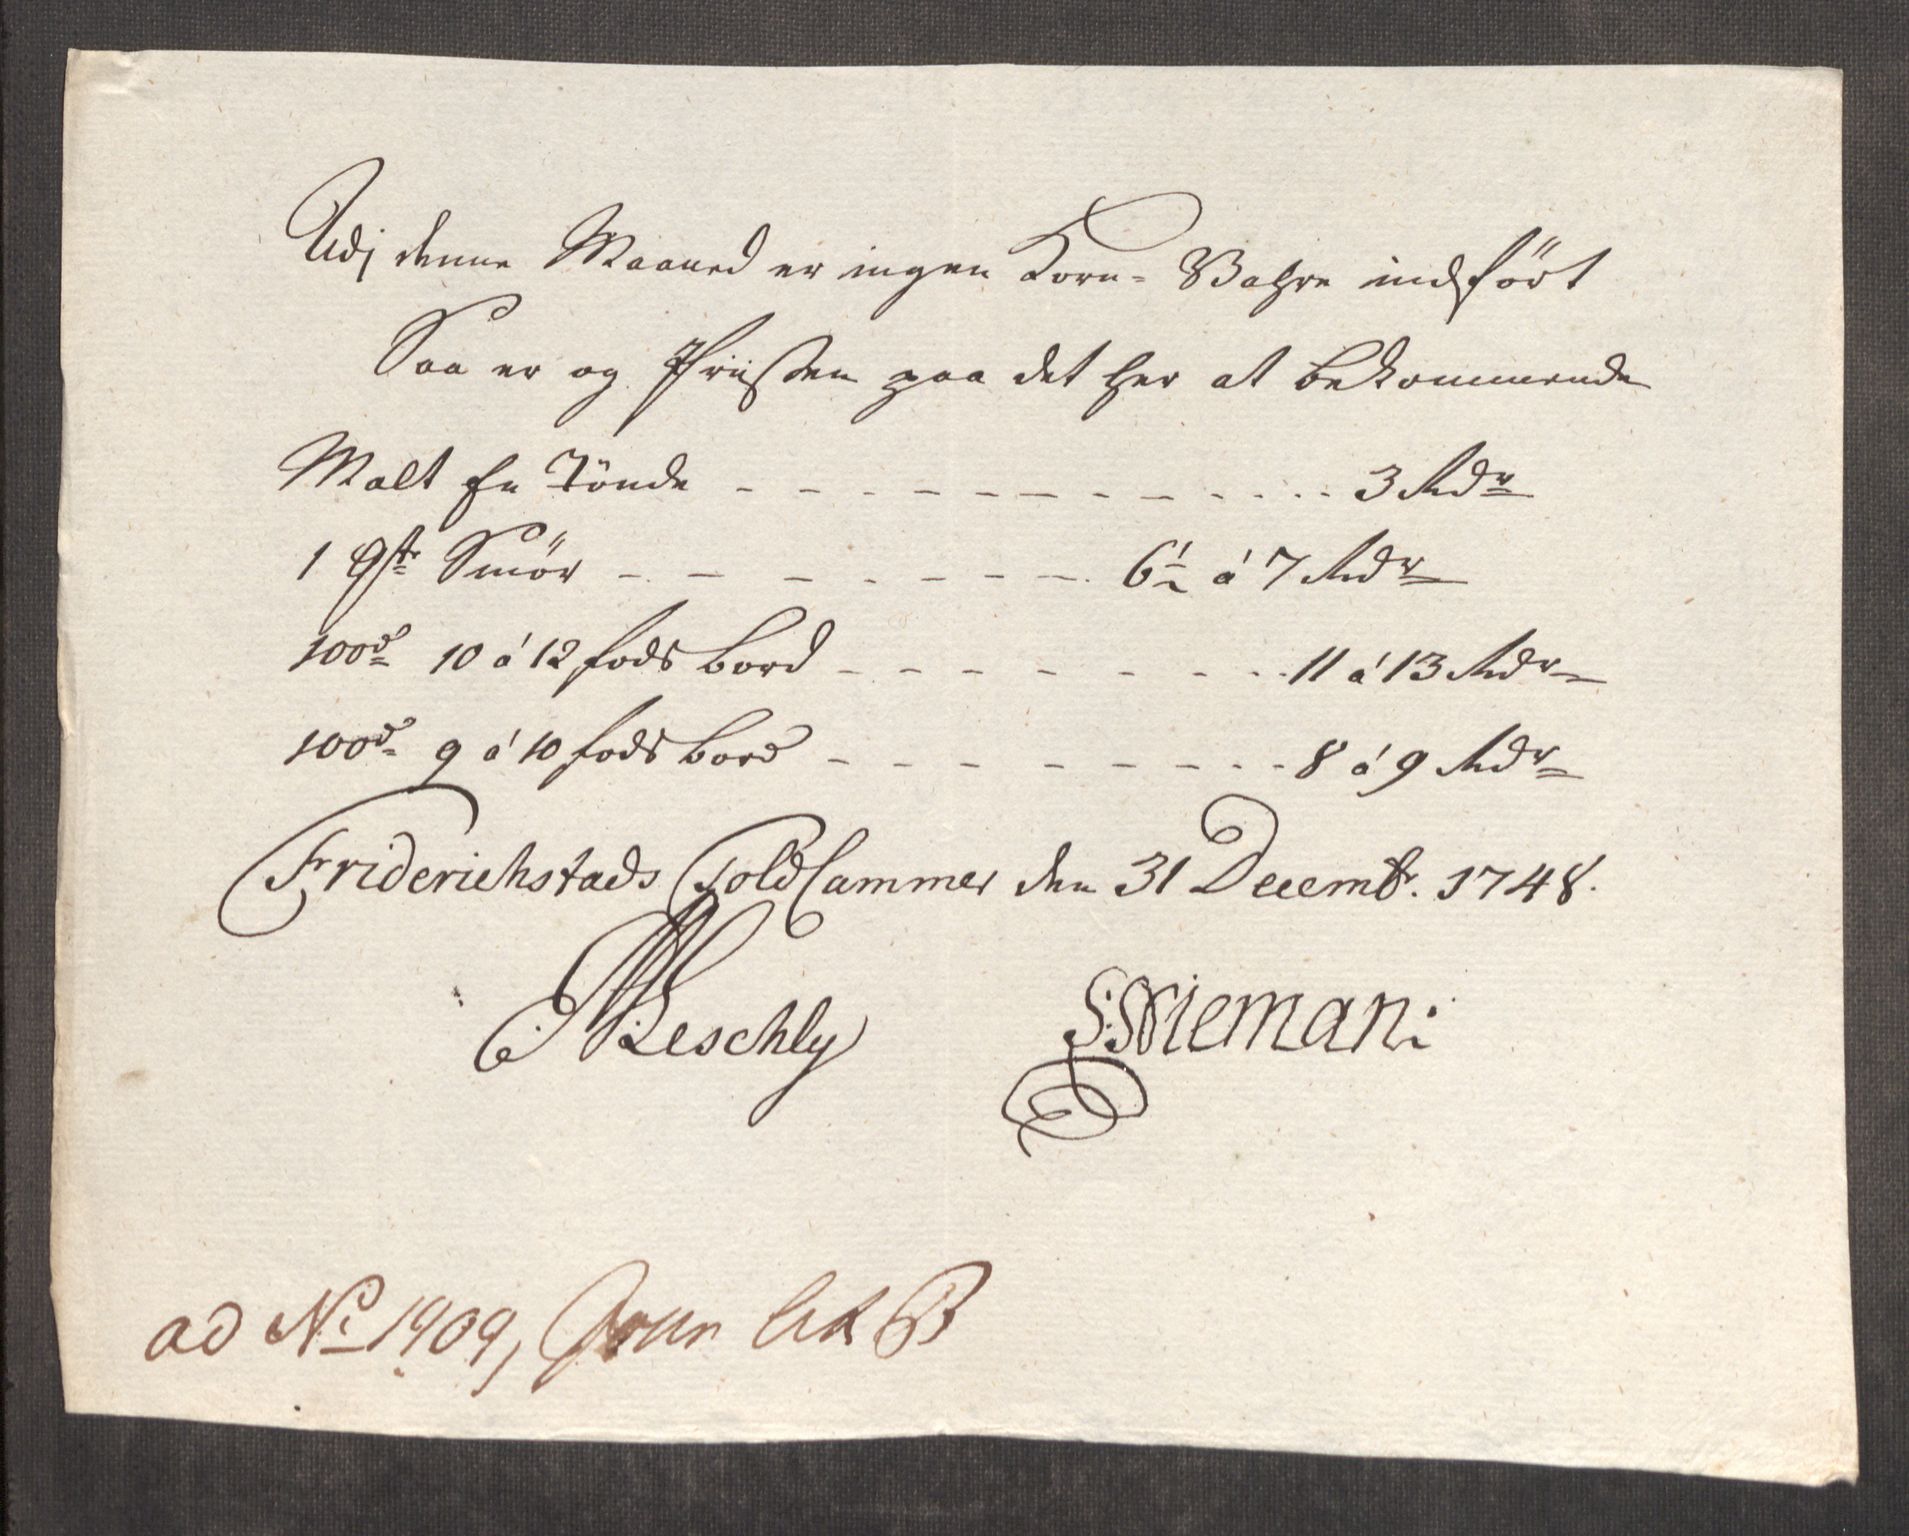 Udj denne Maaned er ingen Korn-Vahre indfört
Saa er og Priissen paa det her at bekommende
Malt En Tönde 3 Rdr
1 Smör 6½ á 7 Rdr
100d 10 á 12 fods bord 11 á 13 Rdr
100d 9 á 10 fods bord 8 á 9 Rdr
Friderichstads Told Cammer den 31 Decembr. 1748.
Leschly S: Nieman:
ad No 1909, Lit B